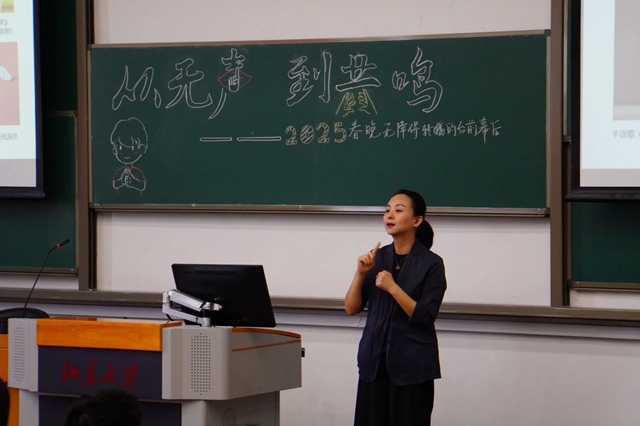 从无声到共鸣
——2025春晚无障碍转播的台前幕后
北京大学